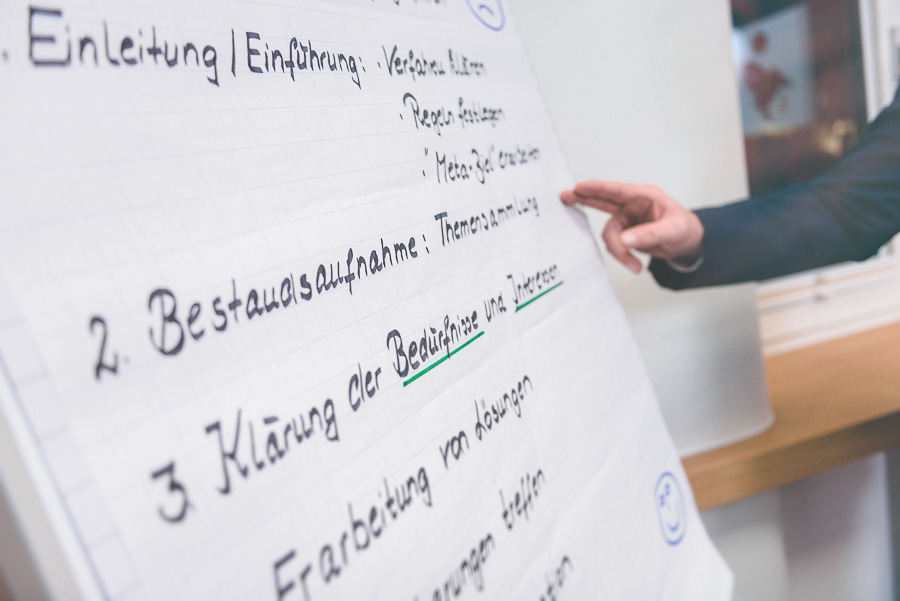 . Einleitung / Einführung: · Verfahren klären
· Regeln festlegen
· "Meta-Ziel" erarbeiten
2. Bestandsaufnahme: Themensammlung
3. Klärung der Bedürfnisse und Interessen
Erarbeitung von Lösungen
treffen